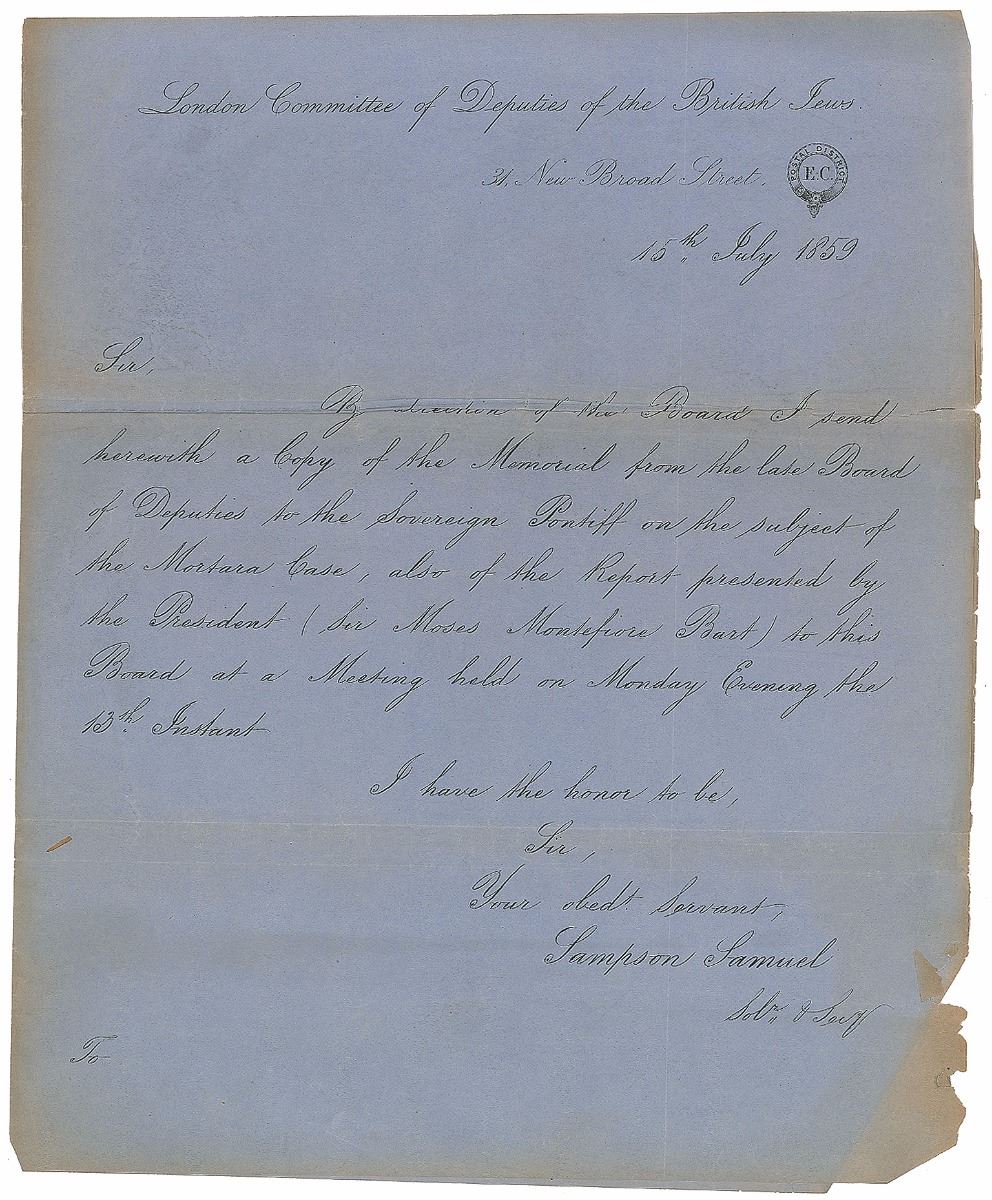 London Committee of Deputies of the British Jews.
31, New Broad Street.
POSTAL DISTRICT
E.C.
15th July 1859
Sir,
By direction of the Board I send
herewith a Copy of the Memorial from the late Board
of Deputies to the Sovereign Pontiff on the subject of
the Mortara Case, also of the Report presented by
the President (Sir Moses Montefiore Bart) to this
Board at a Meeting held on Monday Evening the
13th. Instant
I have the honor to be,
Sir,
Your obedt. Servant,
Sampson Samuel
Solr. & Secy
To